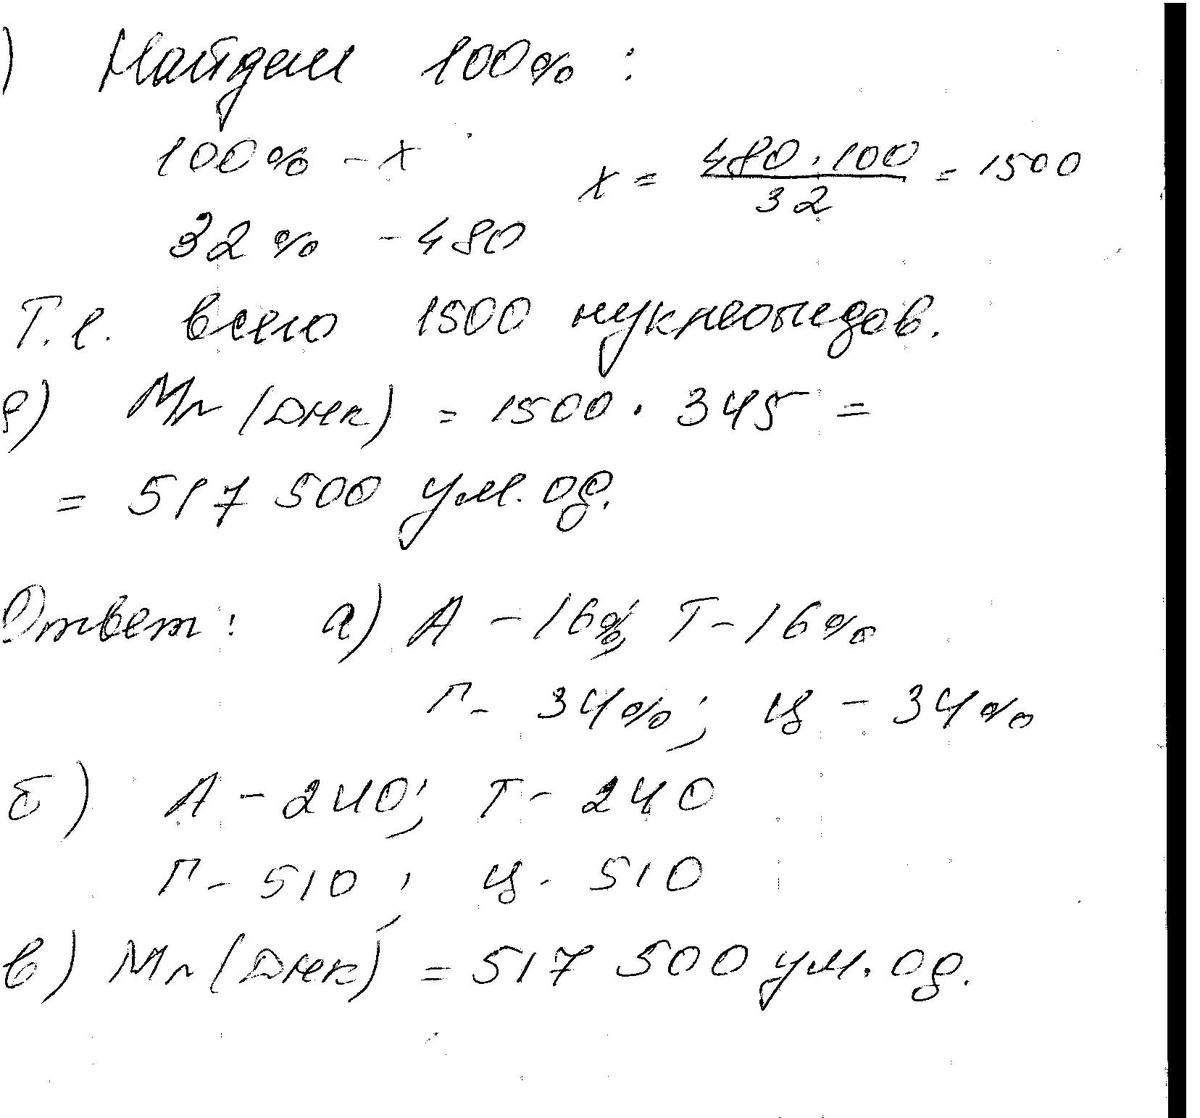 ) Найдем 100% :
100% - х
х = 480 · 100 / 32 = 1500
32% - 480
Т.е. всего 1500 нуклеотидов.
в) Mr (ДНК) = 1500 · 345 =
= 517 500 ум. од.
Ответ: а) А - 16%; Т - 16%
Г - 34%; Ц - 34%
б) А - 240; Т - 240
Г - 510; Ц - 510
в) Mr (ДНК) = 517 500 ум. од.